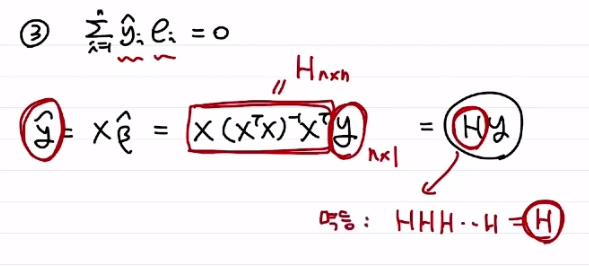 ③ Σᵢ₌₁ⁿ ŷᵢ eᵢ = 0
〃 Hₙₓₙ
ŷ = Xβ̂ = X(XᵀX)⁻¹Xᵀ y ₙₓ₁ = Hy
멱등 : HHH··H = H